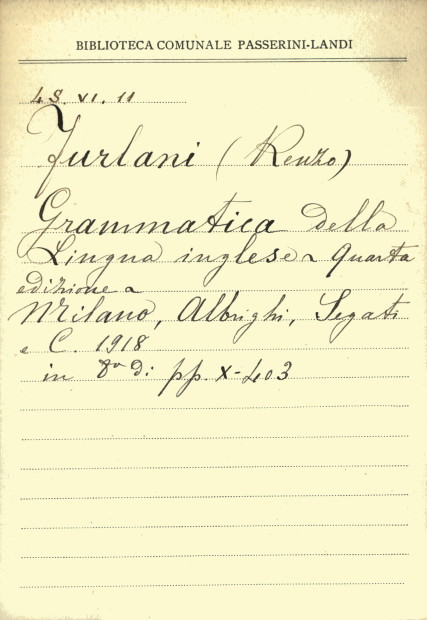 BIBLIOTECA COMUNALE PASSERINI-LANDI
L S. VI. 11
Furlani (Renzo)
Grammatica della
Lingua inglese ~ Quarta
edizione ~
Milano, Albrighi, Segati
e C. 1918
in 8º di pp. X-403